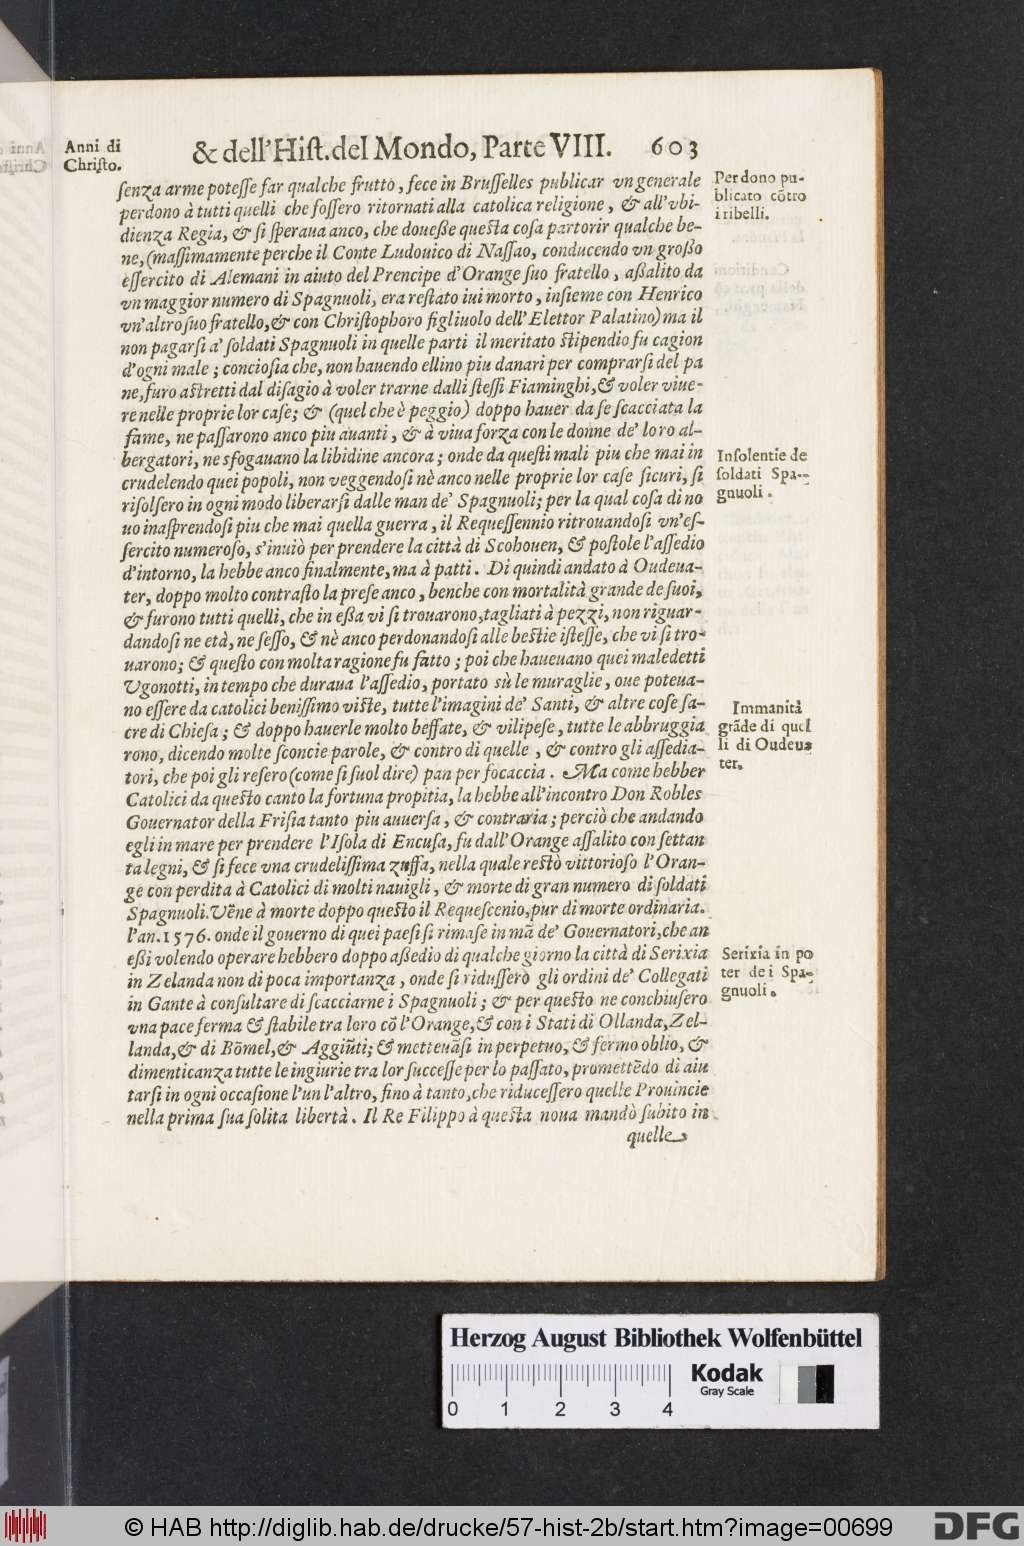 Anni di
Chriſto.
& dell'Hiſt. del Mondo, Parte VIII. 603
ſenza arme poteſſe far qualche frutto, fece in Bruſſelles publicar vn generale
perdono à tutti quelli che foſſero ritornati alla catolica religione, & all'vbi-
dienza Regia, & ſi ſperaua anco, che doueße queſta coſa partorir qualche be-
ne, (maſſimamente perche il Conte Ludouico di Naſſao, conducendo vn großo
eſſercito di Alemani in aiuto del Prencipe d'Orange ſuo fratello, aßalito da
vn maggior numero di Spagnuoli, era reſtato iui morto, inſieme con Henrico
vn'altro ſuo fratello, & con Chriſtophoro figliuolo dell'Elettor Palatino) ma il
non pagarſi a' ſoldati Spagnuoli in quelle parti il meritato ſtipendio fu cagion
d'ogni male; concioſia che, non hauendo ellino piu danari per comprarſi del pa
ne, furo aſtretti dal diſagio à voler trarne dalli ſteſſi Fiaminghi, & voler viue-
re nelle proprie lor caſe; & (quel che è peggio) doppo hauer da ſe ſcacciata la
fame, ne paſſarono anco piu auanti, & à viua forza con le donne de' loro al-
bergatori, ne sfogauano la libidine ancora; onde da queſti mali piu che mai in
crudelendo quei popoli, non veggendoſi nè anco nelle proprie lor caſe ſicuri, ſi
riſolſero in ogni modo liberarſi dalle man de' Spagnuoli; per la qual coſa di no
uo inaſprendoſi piu che mai quella guerra, il Requeſſennio ritrouandoſi vn'eſ-
ſercito numeroſo, s'inuiò per prendere la città di Scohouen, & poſtole l'aſſedio
d'intorno, la hebbe anco finalmente, ma à patti. Di quindi andato à Oudeua-
ter, doppo molto contraſto la preſe anco, benche con mortalità grande de ſuoi,
& furono tutti quelli, che in eßa vi ſi trouarono, tagliati à pezzi, non riguar-
dandoſi ne età, ne ſeſſo, & nè anco perdonandoſi alle beſtie iſteſſe, che vi ſi tro-
uarono; & queſto con molta ragione fu fatto; poi che haueuano quei maledetti
Vgonotti, in tempo che duraua l'aſſedio, portato sù le muraglie, oue poteua-
no eſſere da catolici beniſſimo viſte, tutte l'imagini de' Santi, & altre coſe ſa-
cre di Chieſa; & doppo hauerle molto beffate, & vilipeſe, tutte le abbruggia
rono, dicendo molte ſconcie parole, & contro di quelle, & contro gli aſſedia-
tori, che poi gli reſero (come ſi ſuol dire) pan per focaccia. Ma come hebber
Catolici da queſto canto la fortuna propitia, la hebbe all'incontro Don Robles
Gouernator della Friſia tanto piu auuerſa, & contraria; perciò che andando
egli in mare per prendere l'Iſola di Encuſa, fu dall'Orange aſſalito con ſettan
ta legni, & ſi fece vna crudeliſſima zuffa, nella quale reſtò vittorioſo l'Oran-
ge con perdita à Catolici di molti nauigli, & morte di gran numero di ſoldati
Spagnuoli. Vẽne à morte doppo queſto il Requeſcenio, pur di morte ordinaria.
l'an. 1576. onde il gouerno di quei paeſi ſi rimaſe in mã de' Gouernatori, che an
eßi volendo operare hebbero doppo aßedio di qualche giorno la città di Serixia
in Zelanda non di poca importanza, onde ſi riduſſerò gli ordini de' Collegati
in Gante à conſultare di ſcacciarne i Spagnuoli; & per queſto ne conchiuſero
vna pace ferma & ſtabile tra loro cõ l'Orange, & con i Stati di Ollanda, Zel-
landa, & di Bõmel, & Aggiũti; & metteuãſi in perpetuo, & fermo oblio, &
dimenticanza tutte le ingiurie tra lor ſucceſſe per lo paſſato, promettẽdo di aiu
tarſi in ogni occaſione l'un l'altro, fino à tanto, che riduceſſero quelle Prouincie
nella prima ſua ſolita libertà. Il Re Filippo à queſta noua mandò ſubito in
quelle
Perdono pu-
blicato cõtro
i ribelli.
Inſolentie de
ſoldati Spa-
gnuoli.
Immanità
grãde di quel
li di Oudeua
ter.
Serixia in po
ter de i Spa-
gnuoli.
Herzog August Bibliothek Wolfenbüttel
0 1 2 3 4
Kodak
Gray Scale
© HAB http://diglib.hab.de/drucke/57-hist-2b/start.htm?image=00699
DFG